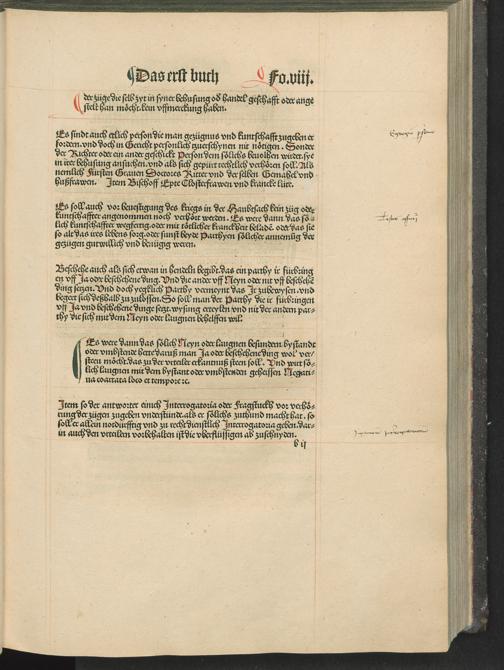 Das erst buch Fo.viij.
der züge die selb zyt in syner behusung oď handel geschafft oder ange
stelt han möcht. kein vffmerckung haben.
Es sindt auch etlich person die man gezügnus vnd kuntschafft zugeben er
fordern. vnd doch in Gericht personlich zuerschynen nit nötigen. Sonder
der Richter oder ein ander geschickt Person dem sölichs beuolhen wirdet. sy
in irer behusung ansuchen. vnd als sich gepürt rechtlich verhören soll. Als
nemlich Fürsten Grauen Doctores Ritter vnd der selben Gemahel vnd
hußfrawen. Item Bischoff Epte Closterfrawen vnd krancke lüte.
Es soll auch vor beuestigung des kriegs in der Haubtsach kein züg oder
kuntschaffter angenommen noch verhört werden. Es were dann das sö-
lich kuntschaffter wegfertig. oder mit tötlicher kranckheit beladē. oder das sie
so alt das ires lebens sorg. oder sunst beyde Parthyen sölicher annemug der
gezügen gutwillich vnd benügig weren.
Beschehe auch als sich etwan in hendeln begibt. das ein parthy ir fürbring
en vff Ja oder beschehene ding. Vnd die ander vff Neyn oder nit vff beschehē
ding setzen. Vnd doch yegklich Parthy vermeynt das Ir zubewysen. vnd
begert sich deßhalb zuzulossen. So soll man der Parthy die ir fürbringen
vff Ja vnd beschehene dinge setzt. wysung erteyln vnd nit der andern par-
thy die sich mit dem Neyn oder laugnen behelffen wil.
Es were dann das sölich Neyn oder laugnen besundern bystandt
oder vmbstende hette daruß man Ja oder beschehene ding wol ver-
steen möcht. das zu der vrteiler erkantnuß steen soll. Vnd wirt sö-
lich laugnen mit dem bystant oder vmbstenden geheissen Negati-
ua coartata loco et tempore ꝛc.
Item so der antworter einich Interrogatoria oder Fragstuckh vor verhö-
rung der zügen zugeben vnderstünd. als er sölichs zuthund macht hat. so
soll er allein notdürfftig vnd zu recht dienstlich Interrogatoria geben. dar-
in auch den vrteilen vorbehalten ist die überflüssigen ab zuschnyden.
b ij